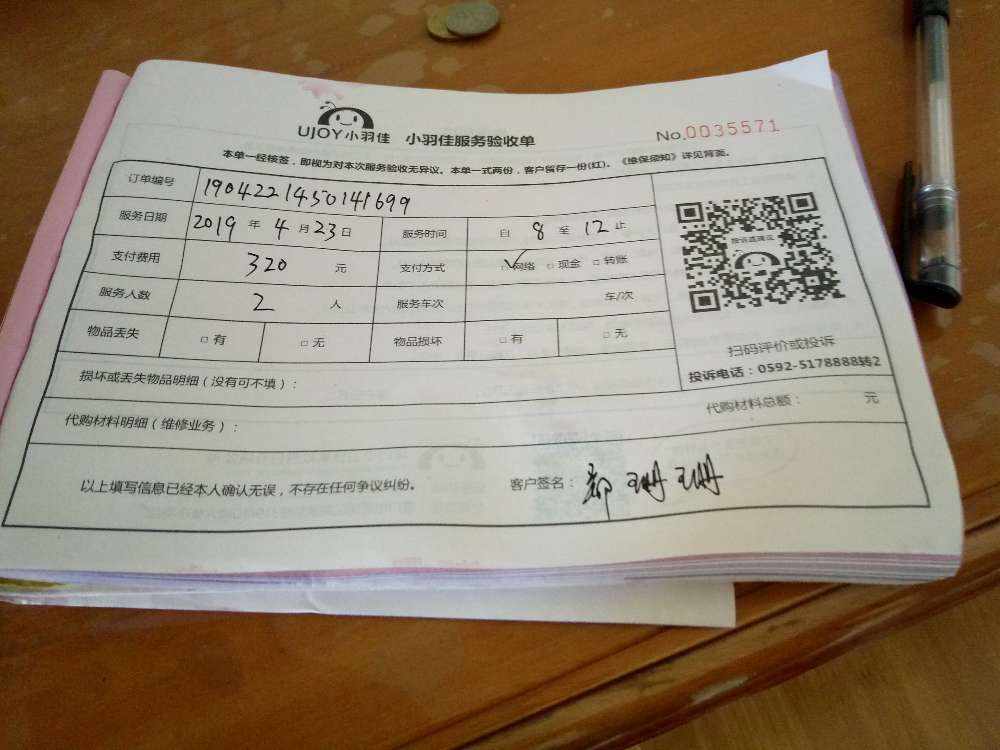 UJOY小羽佳 小羽佳服务验收单 No.0035571
本单一经核签，即视为对本次服务验收无异议。本单一式两份，客户留存一份(红)。《维保须知》详见背面。
订单编号 1904221450141699
服务日期 2019 年 4 月 23 日 服务时间 自 8 至 12 止
支付费用 320 元 支付方式 ☑网络 □现金 □转账
服务人数 2 人 服务车次 车/次
物品丢失 □有 □无 物品损坏 □有 □无
投诉或建议
扫码评价或投诉
投诉电话：0592-5178888转2
损坏或丢失物品明细（没有可不填）：
代购材料明细（维修业务）： 代购材料总额： 元
以上填写信息已经本人确认无误，不存在任何争议纠纷。 客户签名：郗珊珊